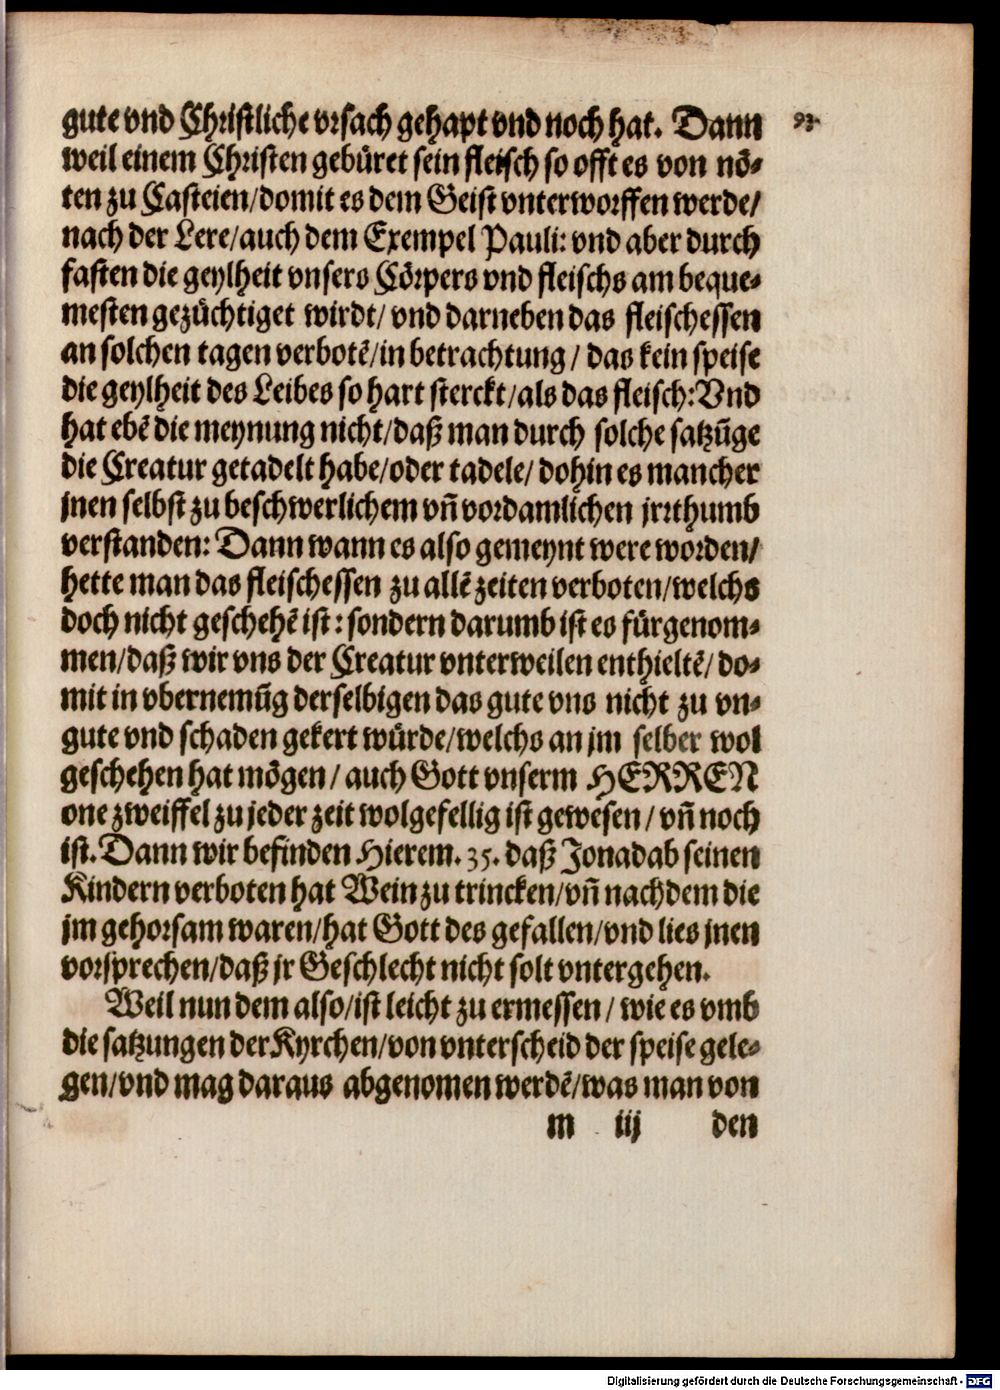 gute vnd Christliche vrsach gehapt vnd noch hat. Dann 93.
weil einem Christen gebüret sein fleisch so offt es von nö-
ten zu Casteien/domit es dem Geist vnterworffen werde/
nach der Lere/auch dem Exempel Pauli: vnd aber durch
fasten die geylheit vnsers Cörpers vnd fleischs am beque-
mesten gezüchtiget wirdt/ vnd darneben das fleischessen
an solchen tagen verbotē/in betrachtung/ das kein speise
die geylheit des Leibes so hart sterckt/als das fleisch: Vnd
hat ebē die meynung nicht/daß man durch solche satzūge
die Creatur getadelt habe/oder tadele/ dohin es mancher
jnen selbst zu beschwerlichem vñ vordamlichen jrrthumb
verstanden: Dann wann es also gemeynt were worden/
hette man das fleischessen zu allē zeiten verboten/welchs
doch nicht geschehē ist: sondern darumb ist es fürgenom-
men/daß wir vns der Creatur vnterweilen enthieltē/ do-
mit in vbernemūg derselbigen das gute vns nicht zu vn-
gute vnd schaden gekert würde/welchs an jm selber wol
geschehen hat mögen/ auch Gott vnserm HERREN
one zweiffel zu jeder zeit wolgefellig ist gewesen/ vñ noch
ist. Dann wir befinden Hierem. 35. daß Jonadab seinen
Kindern verboten hat Wein zu trincken/vñ nachdem die
jm gehorsam waren/hat Gott des gefallen/vnd lies jnen
vorsprechen/daß jr Geschlecht nicht solt vntergehen.
Weil nun dem also/ist leicht zu ermessen/ wie es vmb
die satzungen der Kyrchen/von vnterscheid der speise gele-
gen/vnd mag daraus abgenomen werdē/was man von
m iij den
Digitalisierung gefördert durch die Deutsche Forschungsgemeinschaft - DFG